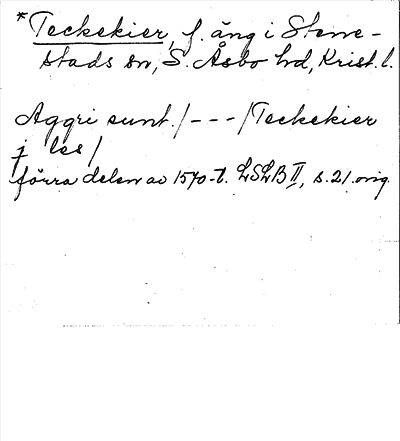 *Teckekier, f. äng i Stene-
stads sn, S. Åsbo hd, Krist. l.
Aggri sunt./---/Teckekier
j les/
förra delen av 1570-t. LSLB II, s. 21. orig.